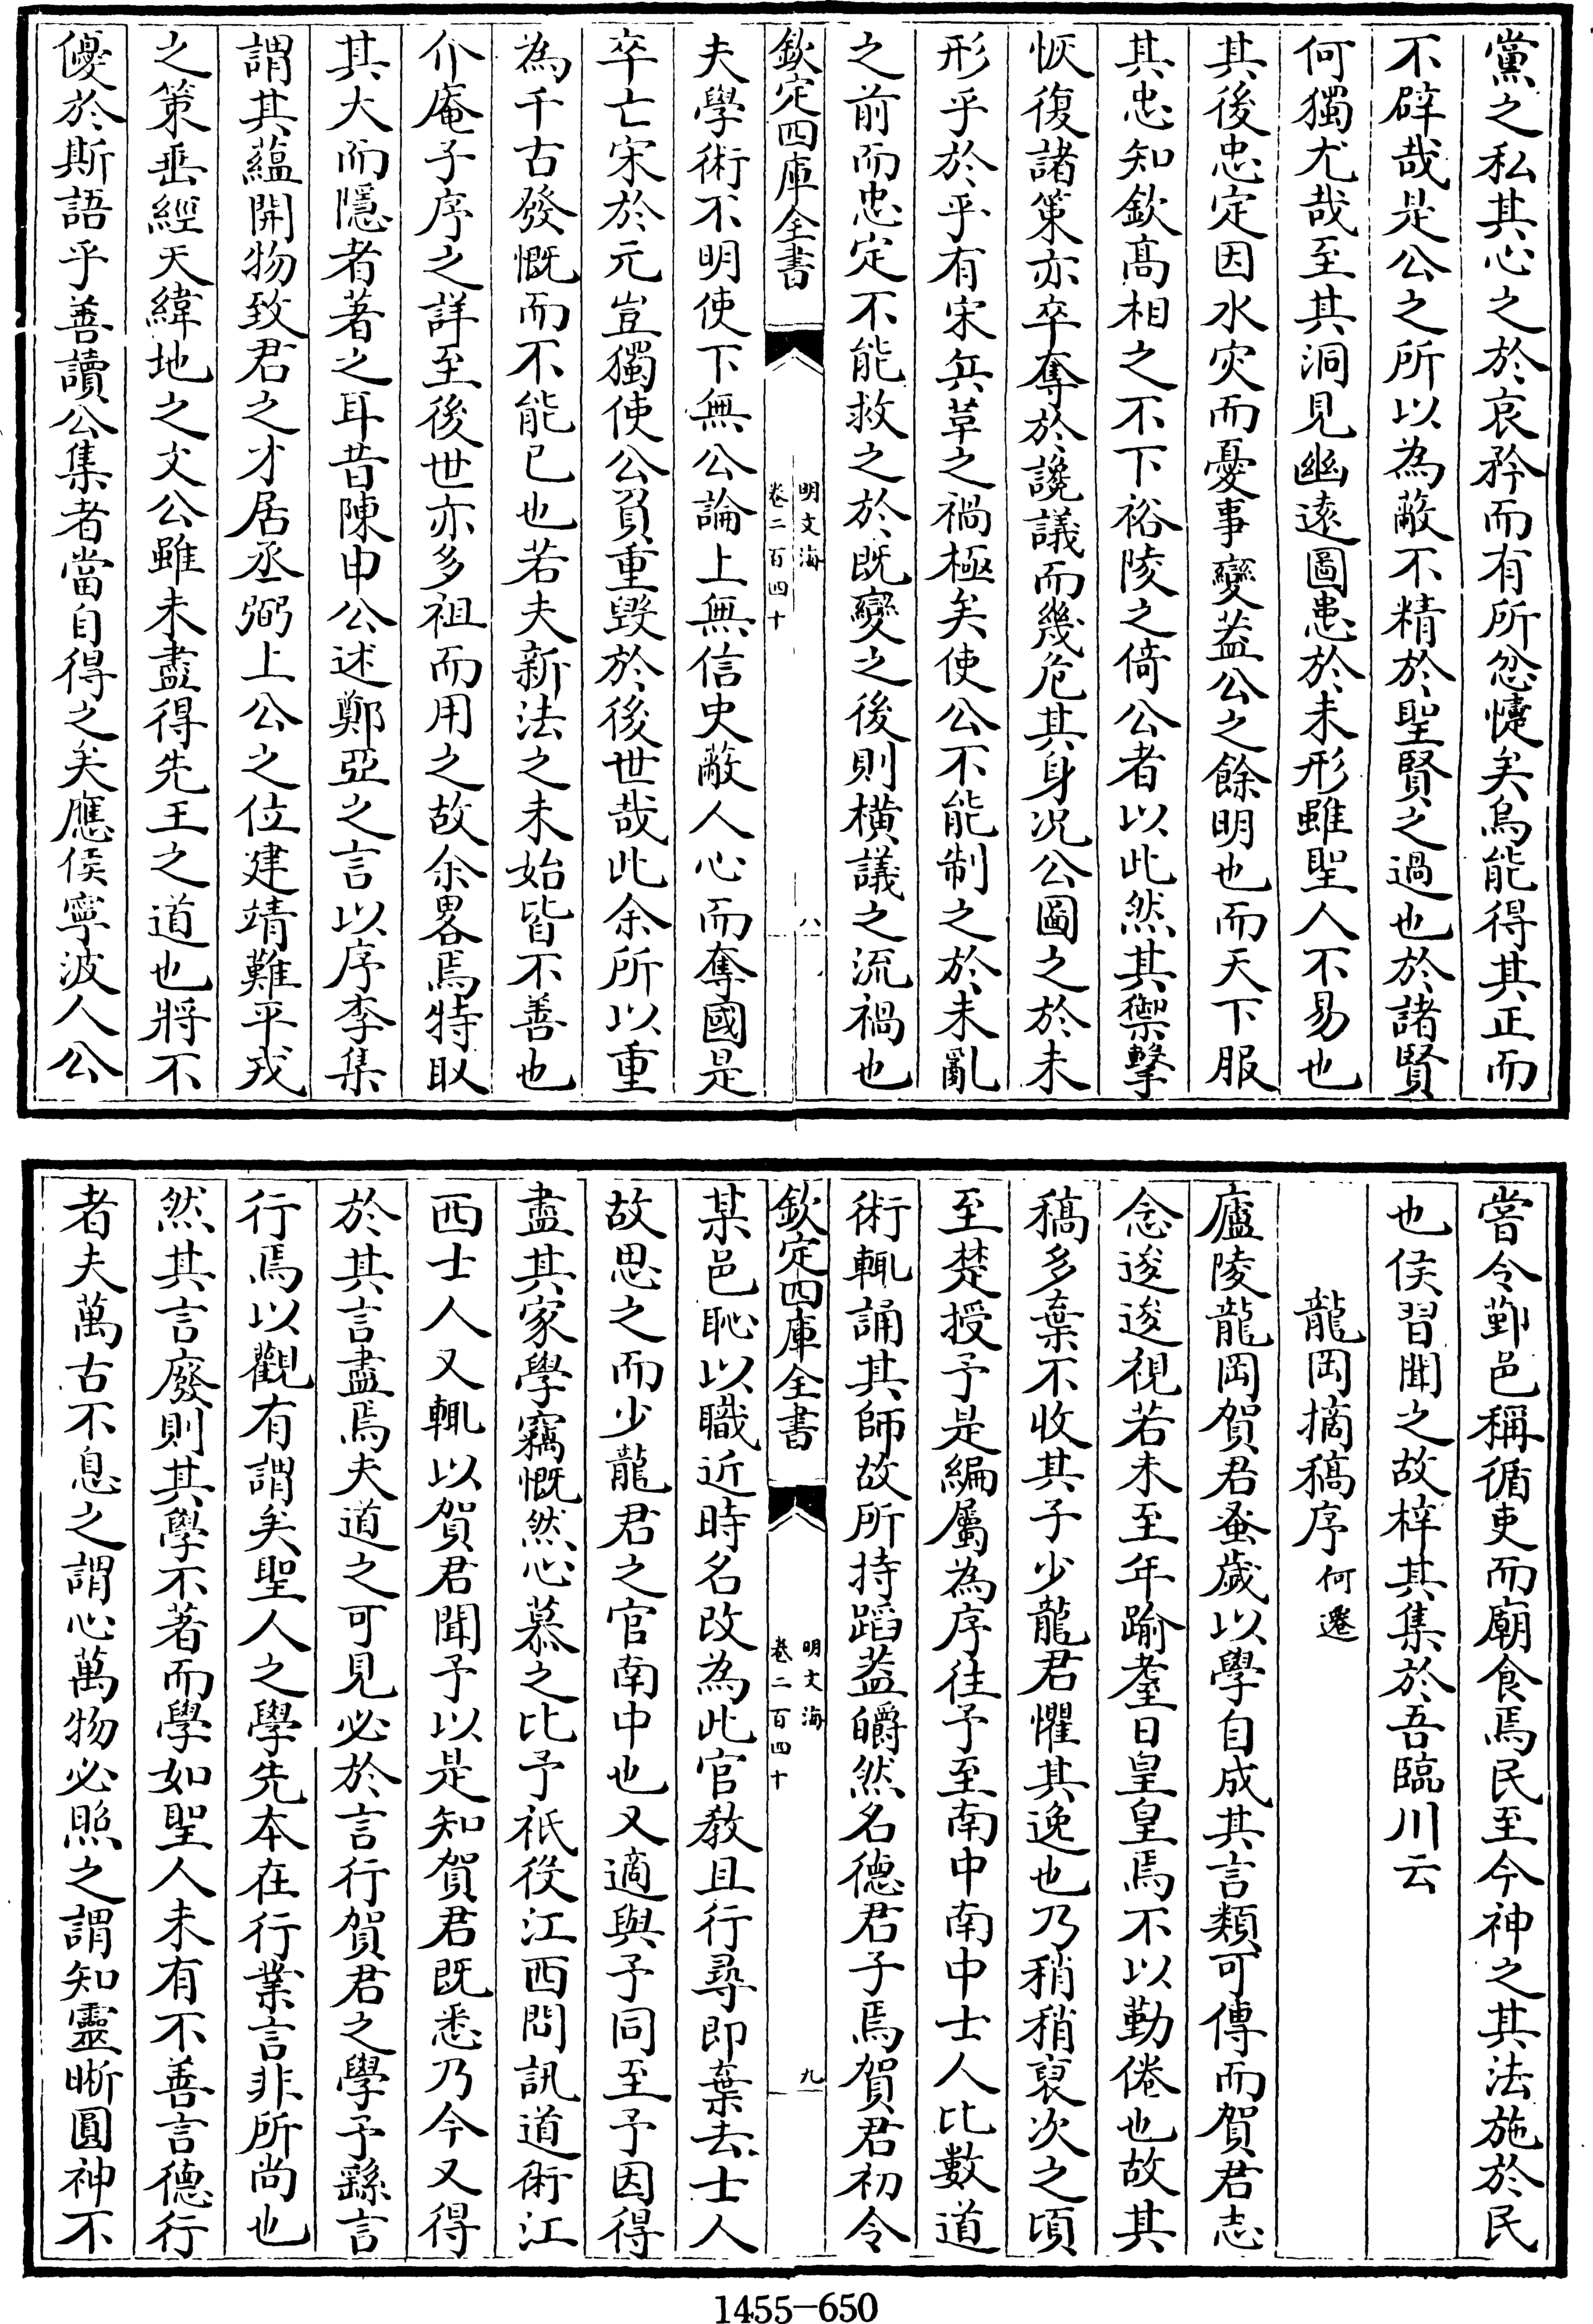 黨之私其心之於哀矜而有所忿懥矣烏能得其正而
不辟哉是公之所以為蔽不精於聖賢之過也於諸賢
何獨尤哉至其洞見幽遠圖患於未形雖聖人不易也
其後忠定因水灾而憂事變葢公之餘明也而天下服
其忠知欽髙相之不下裕陵之倚公者以此然其禦擊
恢復諸策亦卒奪於讒議而幾危其身况公圖之於未
形乎於乎有宋兵革之禍極矣使公不能制之於未亂
之前而忠定不能救之於既變之後則横議之流禍也
欽定四庫全書
明文海
卷二百四十
八
夫學術不明使下無公論上無信史蔽人心而奪國是
卒亡宋於元豈獨使公負重毀於後世哉此余所以重
為千古發慨而不能已也若夫新法之未始皆不善也
介庵子序之詳至後世亦多祖而用之故余畧焉特取
其大而隱者著之耳昔陳申公述鄭亞之言以序李集
謂其蘊開物致君之才居丞弼上公之位建靖難平戎
之策垂經天緯地之文公雖未盡得先王之道也將不
優於斯語乎善讀公集者當自得之矣應侯寧波人公
嘗令鄞邑稱循吏而廟食焉民至今神之其法施於民
也侯習聞之故梓其集於吾臨川云
龍岡摘稿序 何遷
廬陵龍岡賀君蚤歲以學自成其言類可傳而賀君志
念逡逡視若未至年踰耋日皇皇焉不以勤倦也故其
稿多棄不收其子少龍君懼其逸也乃稍稍裒次之頃
至楚授予是編屬為序往予至南中南中士人比數道
術輒誦其師故所持蹈葢皭然名德君子焉賀君初令
欽定四庫全書
明文海
卷二百四十
九
某邑恥以職近時名改為此官教且行尋即棄去士人
故思之而少龍君之官南中也又適與予同至予因得
盡其家學竊慨然心慕之比予祇役江西問訊道術江
西士人又輒以賀君聞予以是知賀君既悉乃今又得
於其言盡焉夫道之可見必於言行賀君之學予繇言
行焉以觀有謂矣聖人之學先本在行業言非所尚也
然其言廢則其學不著而學如聖人未有不善言德行
者夫萬古不息之謂心萬物必照之謂知靈晰圓神不
1455-650